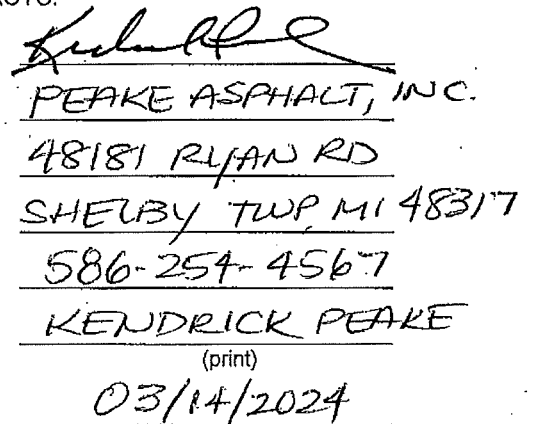 PEAKE ASPHALT, INC.
48181 RYAN RD
SHELBY TWP, MI 48317
586-254-4567
KENDRICK PEAKE
(print)
03/14/2024